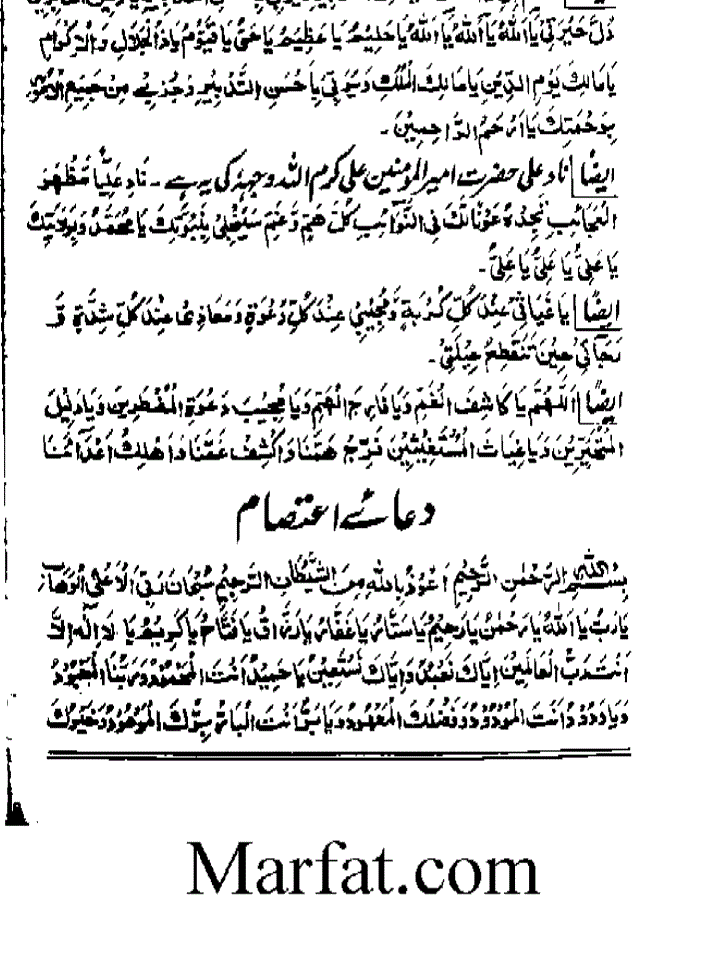 دَلَّ حَيْرَتِيْ يَا اَللهُ يَا اَللهُ يَا اَللهُ يَا حَلِيْمُ يَا عَظِيْمُ يَا حَيُّ يَا قَيُّوْمُ يَا ذَا الْجَلَالِ وَالْاِكْرَامِ
يَا مَالِكَ يَوْمِ الدِّيْنِ يَا مَالِكَ الْمُلْكِ يَا حُسْنَ التَّدْبِيْرِ مِنْ جَمِيْعِ
بِرَحْمَتِكَ يَا اَرْحَمَ الرَّاحِمِيْنَ۔
ایضًا ناد علی حضرت امیر المومنین علی کرم اللہ وجہہٗ کی یہ ہے۔ نَادِ عَلِيًّا مَّظْهَرَ
الْعَجَائِبِ تَجِدْهُ عَوْنًا لَّكَ فِي النَّوَآئِبِ كُلُّ هَمٍّ وَّغَمٍّ سَيَنْجَلِيْ بِنُبُوَّتِكَ يَا مُحَمَّدُ وَبِوَلَايَتِكَ
يَا عَلِيُّ يَا عَلِيُّ يَا عَلِيُّ۔
ایضًا يَا غِيَاثِيْ عِنْدَ كُلِّ كُرْبَةٍ وَّمُجِيْبِيْ عِنْدَ كُلِّ دَعْوَةٍ وَمَعَاذِيْ عِنْدَ كُلِّ شِدَّةٍ وَّ
رَجَآئِيْ حِيْنَ تَنْقَطِعُ حِيْلَتِيْ۔
ایضًا اَللّٰهُمَّ يَا كَاشِفَ الْغَمِّ وَيَا فَارِجَ الْهَمِّ وَيَا مُجِيْبَ دَعْوَةِ الْمُضْطَرِّيْنَ وَيَا دَلِيْلَ
الْمُتَحَيِّرِيْنَ وَيَا غِيَاثَ الْمُسْتَغِيْثِيْنَ فَرِّجْ هَمَّنَا وَاكْشِفْ غَمَّنَا وَاَهْلِكْ اَعْدَآئَنَا
دعائے اعتصام
بِسْمِ اللهِ الرَّحْمٰنِ الرَّحِيْمِ اَعُوْذُ بِاللهِ مِنَ الشَّيْطَانِ الرَّجِيْمِ سُبْحَانَ رَبِّيَ الْاَعْلَى الْوَهَّابِ
يَا رَبُّ يَا اَللهُ يَا رَحْمٰنُ يَا رَحِيْمُ يَا سَتَّارُ يَا غَفَّارُ يَا رَزَّاقُ يَا فَتَّاحُ يَا كَرِيْمُ يَا لَا اِلٰهَ اِلَّا
اَنْتَ رَبَّ الْعَالَمِيْنَ اِيَّاكَ نَعْبُدُ وَاِيَّاكَ نَسْتَعِيْنُ يَا حَمِيْدُ اَنْتَ الْمَحْمُوْدُ وَرَبَّنَا الْمَعْبُوْدُ
وَيَا وَدُوْدُ اَنْتَ الْمَوْدُوْدُ وَفَضْلُكَ الْمَعْهُوْدُ وَيَا بَرُّ اَنْتَ الْبَارُّ بِرُّكَ الْمَوْعُوْدُ وَخَيْرُكَ
Marfat.com